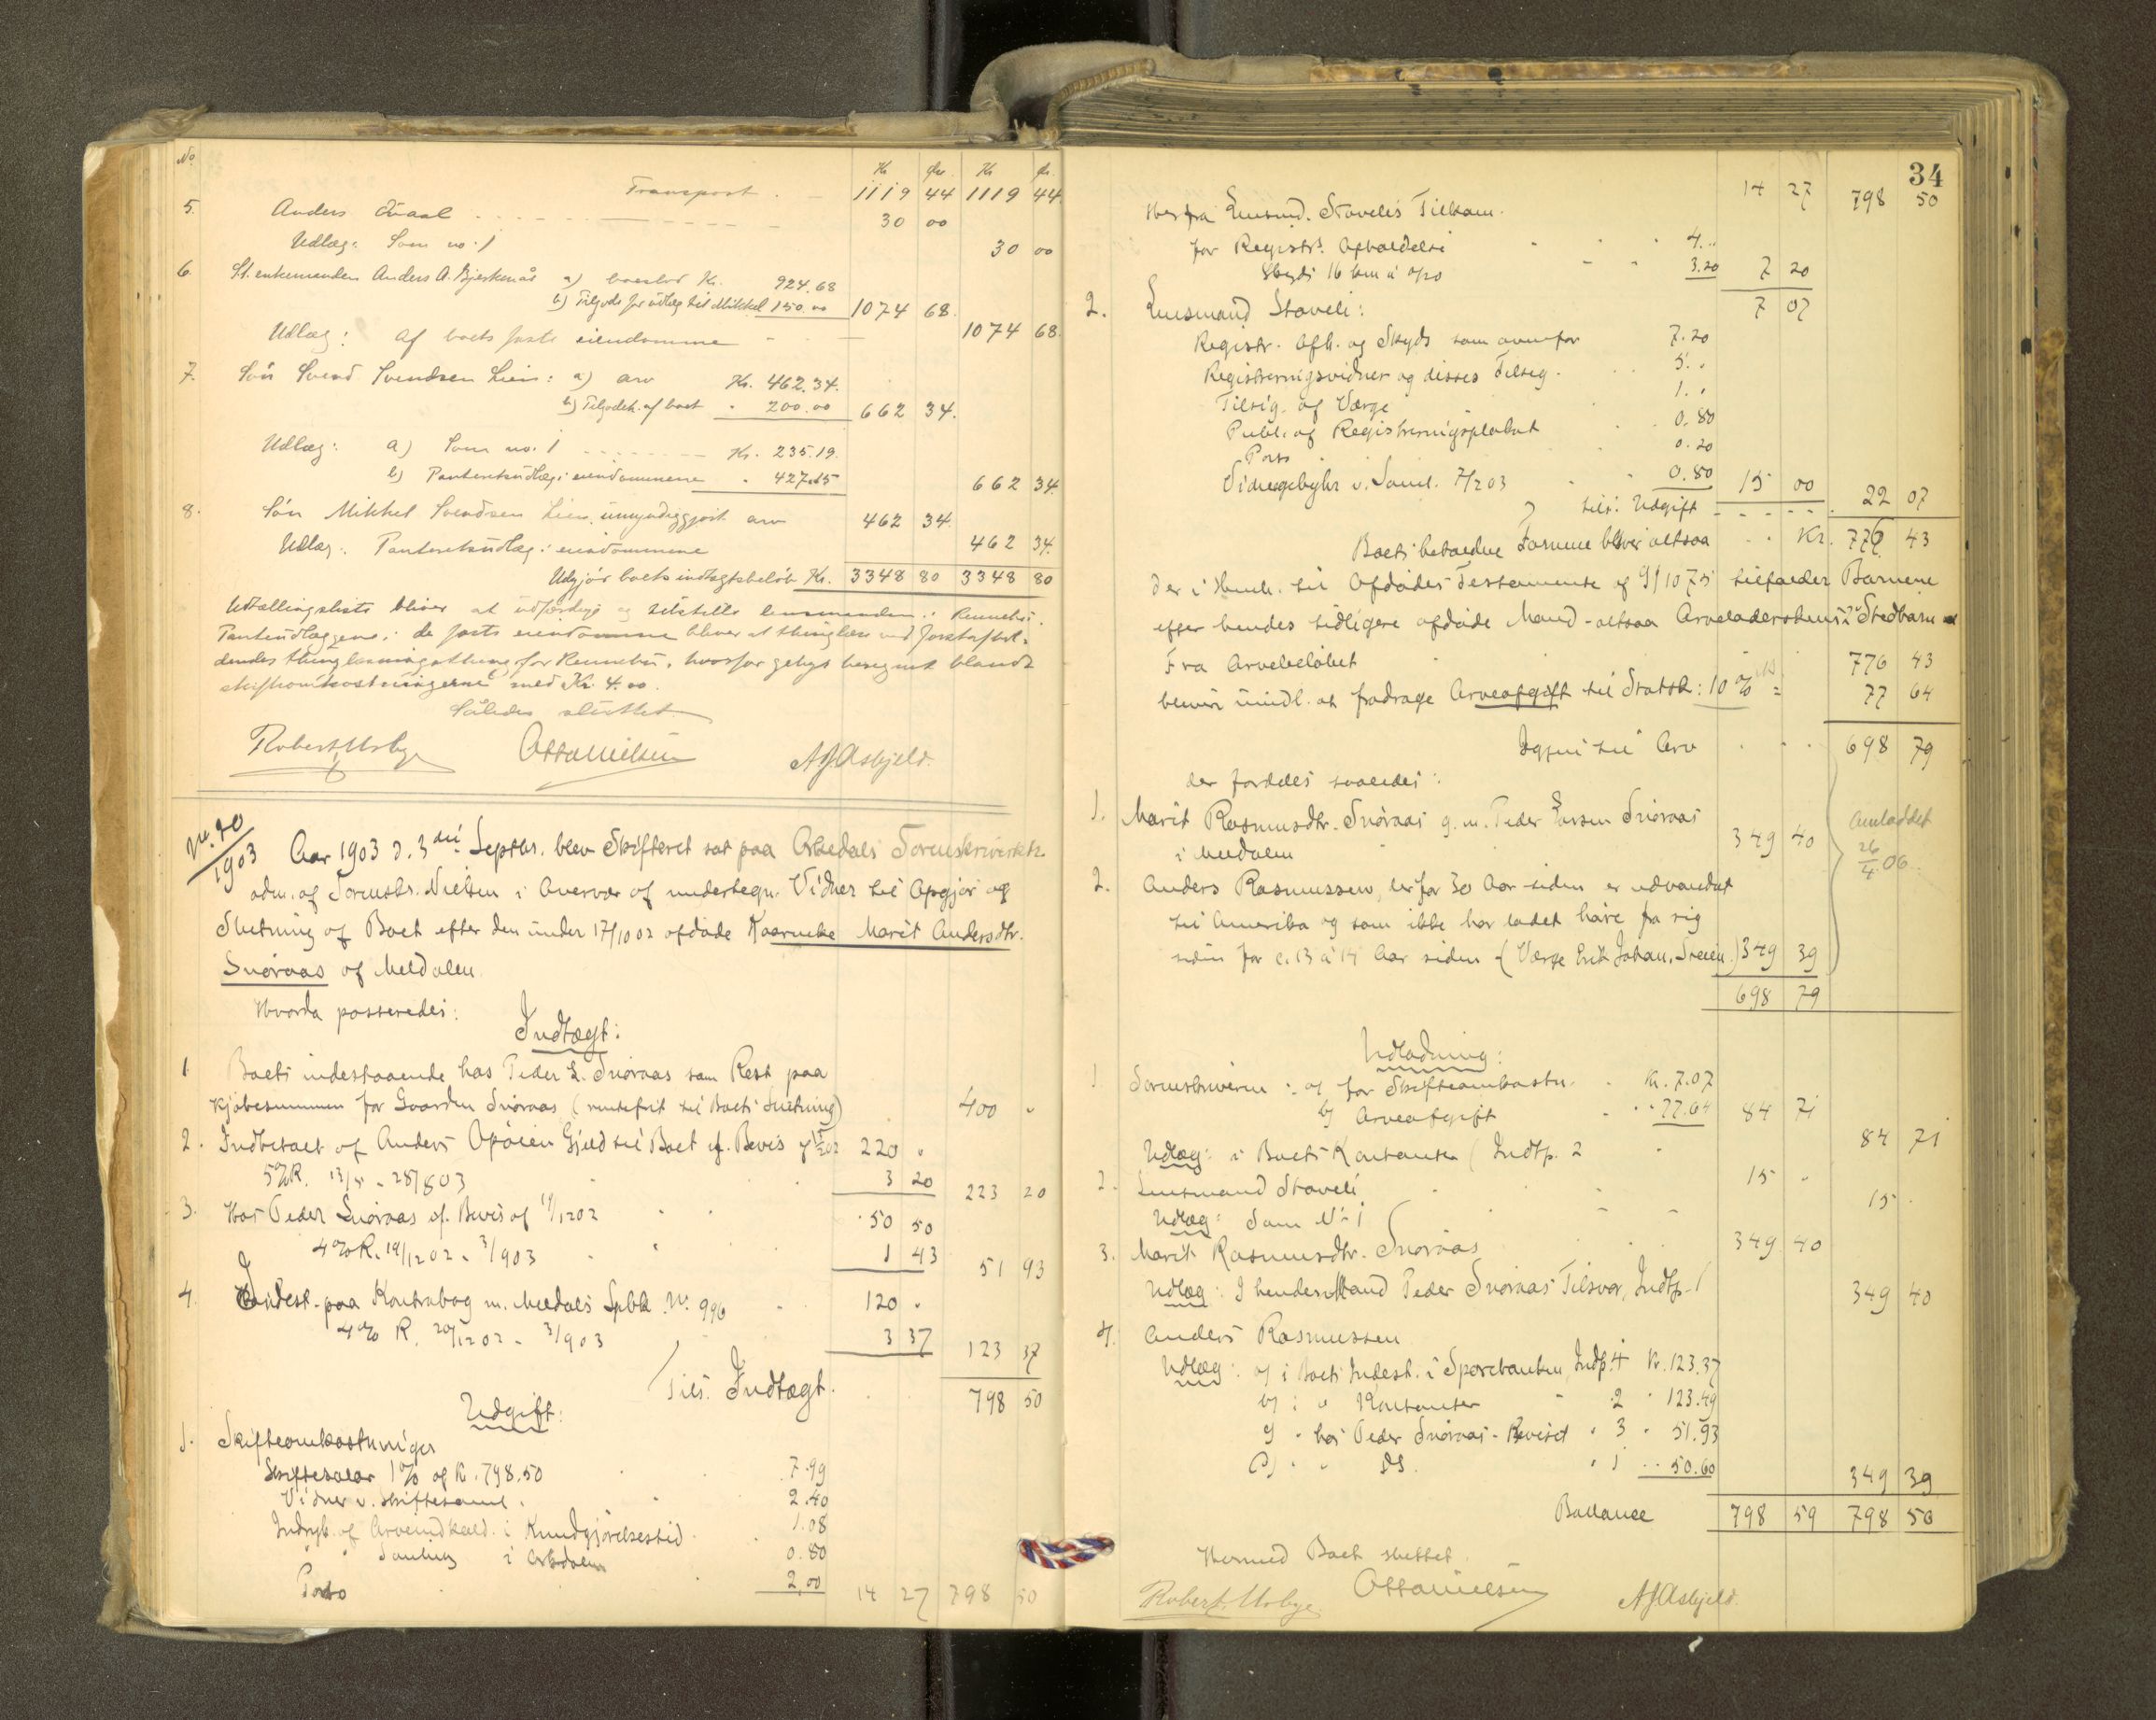 No.
Kr. Ør. Kr. Ør.
Transport . – 1119 44 1119 44
5. Anders Kvaal . . . . 30 00
Udlæg: Som no. 1 30 00
6. St. enkemanden Anders A. Bjerkenås a) boeslod Kr. 924.68
b) Tilgode for udlæg til Mikkel 150.00 1074 68.
Udlæg: Af boets faste eiendomme – – – 1074 68.
7. Søn Svend Svendsen Lien: a) arv Kr. 462.34.
b) Tilgodeh. af boet " 200.00 662 34.
Udlæg: a) Som no. 1 . . . . Kr. 235.19.
b) Panteretsudlæg i eiendommene " 427.15 662 34.
8. Søn Mikkel Svendsen Lien, umyndiggjort arv 462 34.
Udlæg: Panteretsudlæg i eiendommene 462 34.
Udgjør boets indtægtsbeløb Kr. 3348 80 3348 80
Udællingsliste bliver at udfærdige og tilstille lensmanden i Rennebu.
Panteudlæggene i de faste eiendomme bliver at thinglæse ved førstafhol-
dendes thinglæsningsthing for Rennebu, hvorfor gebyr beregnet blandt
skifteomkostningerne med Kr. 4.00.
Således sluttet
Robert Usbye OttoNielsen AJAsbjeld.
No. 20
1903 Aar 1903 d. 3die Septbr. blev Skifteret sat paa Orkedals Sorenskriverktr.
adm. af Sorenskr. Nielsen i Overvær af undertegn. Vidner til Opgjør og
Slutning af Boet efter den under 17/10 02 afdøde Kaarenke Marit Andersdtr.
Snøraas af Meldalen.
Hvorda posteredes:
Indtægt:
1 Boets indestaaende hos Peder L. Snøraas som Rest paa
Kjøbesummen for Gaarden Snøraas (rentefrit til Boets Slutning) 400 "
2. Indbetalt af Anders Opøien Gjæld til Boet if. Bevis af 220 "
5% R. 13/5 - 28/8 03 3 20 223 20
3. Hos Peder Snøraas if. Bevis af 19/12 02 50 50
4% R. 19/12 02 - 3/9 03 1 43 51 93
4. Indest. paa Kontrabog m. Meldals Spbk. No. 996 120 "
4% R. 20/12 02 - 3/9 03 3 37 123 37
Tils. Indtægt. 798 50
Udgift:
1. Skifteomkostninger
Skiftesalær 1% af Kr. 798.50 7.99
Vidner v. Skiftesaml. 2.40
Indryk. af Arveindkald. i Kundgjørelsestid. 1.08
" " Samling i Orkedalen 0.80
Porto 2.00 14 27 798 50
34
14 27 798 50
Herfra Lensmd. Stavelis Tilkom.
for Registr. Afholdelse 4. "
Skyds 16 km a 0/20 3.20 7 20
7 07
2. Lensmand Staveli:
Registr. Afh. og Skyds som ovenfor 7.20
Registreringsvidner og disses Tilsig. 5. "
Tilsig. af Værge 1. "
Publ. af Registreringsplakat 0.80
Porto 0.20
Vidnegebyhr v. Saml. 7/2 03 0.80 15 00
tils. Udgift 22 07
Boets beholdne Formue bliver altsaa Kr. 776 43
Der i Henh. til Afdødes Testamente af 9/10 75 tilfalder Børnene
efter hendes tidligere afdøde Mand - altsaa Arveladerskens 2 Stedbørn
Fra Arvebeløbet 776 43
bliver imidl. at fradrage Arveafgift til Statsk: 10% = 77 64
Igjen til Arv 698 79
der fordeles saaledes:
1. Marit Rasmusdtr. Snøraas g. m. Peder Larsen Snøraas
i Meldalen 349 40
Omladdet
26/4 06.
2. Anders Rasmussen, der for 30 Aar siden er udvandret
til Amerika og som ikke har ladet høre fra sig
siden for c. 13 à 14 Aar siden (Værge Erik Johan. Sneien.) 349 39
698 79
Udlodning:
1. Sorenskriveren: a) for Skifteomkostn. Kr. 7.07
b) Arveafgift " 77.64 84 71
Udlæg: i Boets Kontanter (Indtp. 2 84 71
2. Lensmand Staveli 15 "
Udlæg: Som No 1 15 "
3. Marit Rasmusdtr. Snøraas 349 40
Udlæg: I hendes Mand Peder Snøraas Tilsvar, Indtp. 1 349 40
4. Anders Rasmussen
Udlæg: a) i Boets Indest. i Sparebanken, Indtp. 4 Kr. 123.37
b) i " Kontanter " 2 " 123.49
c) " hos Peder Snøraas - Beviset " 3 " 51.93
d) " " Ds. " 1 " 50.60 349 39
Ballance 798 59 798 50
Hermed Boet sluttet.
Robert Usbye. OttoNielsen AJAsbjeld.